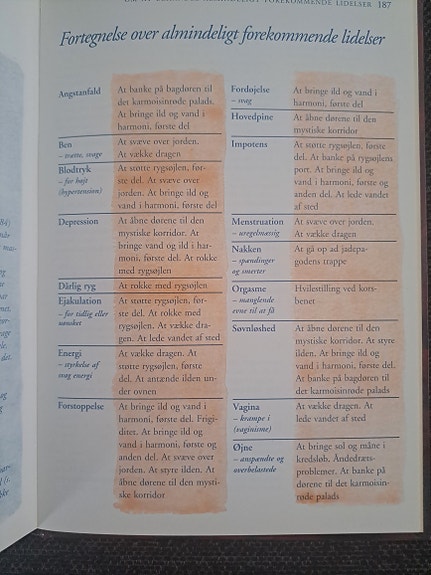 ALMINDELIGT FOREKOMMENDE LIDELSER 187
Fortegnelse over almindeligt forekommende lidelser
Angstanfald
At banke på bagdøren til
det karmoisinrøde palads.
At bringe ild og vand i
harmoni, første del
Ben
– trætte, svage
At svæve over jorden.
At vække dragen
Blodtryk
– for højt
(hypertension)
At støtte rygsøjlen, før-
ste del. At svæve over
jorden. At bringe ild og
vand i harmoni, første del
Depression
At åbne dørene til den
mystiske korridor. At
bringe vand og ild i har-
moni, første del. At rokke
med rygsøjlen
Dårlig ryg
At rokke med rygsøjlen
Ejakulation
– for tidlig eller
uønsket
At støtte rygsøjlen, før-
ste del. At rokke med
rygsøjlen. At vække dra-
gen. At lede vandet af sted
Energi
– styrkelse af
svag energi
At vække dragen. At
støtte rygsøjlen, første
del. At antænde ilden un-
der ovnen
Forstoppelse
At bringe ild og vand i
harmoni, første del. Frigi-
ditet. At bringe ild og
vand i harmoni, første og
anden del. At svæve over
jorden. At styre ilden. At
åbne dørene til den mysti-
ske korridor
Fordøjelse
– svag
At bringe ild og vand i
harmoni, første del
Hovedpine
At åbne dørene til den
mystiske korridor
Impotens
At støtte rygsøjlen, første
del. At banke på rygsøjlens
port. At bringe ild og
vand i harmoni, første og
anden del. At lede vandet
af sted
Menstruation
– uregelmæssig
At svæve over jorden.
At vække dragen
Nakken
– spændinger
og smerter
At gå op ad jadepa-
godens trappe
Orgasme
– manglende
evne til at få
Hvilestilling ved kors-
benet
Søvnløshed
At åbne dørene til den
mystiske korridor. At styre
ilden. At bringe ild og
vand i harmoni, første del.
At banke på bagdøren til
det karmoisinrøde palads
Vagina
– krampe i
(vaginisme)
At vække dragen. At
lede vandet af sted
Øjne
– anspændte og
overbelastede
At bringe sol og måne i
kredsløb. Åndedræts-
problemer. At banke på
dørene til det karmoisin-
røde palads